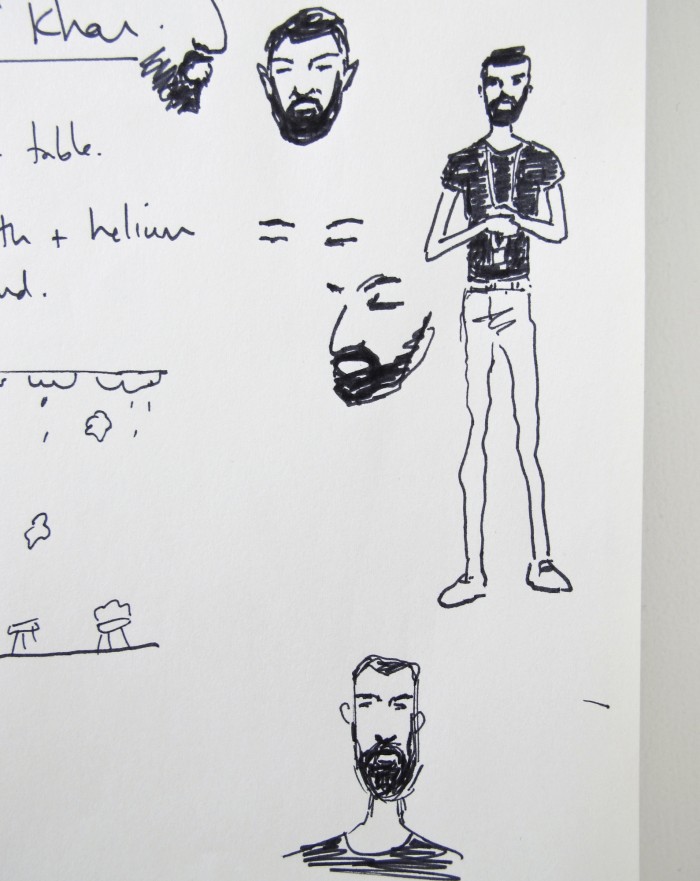 Khan.
table.
th + helium
nd.